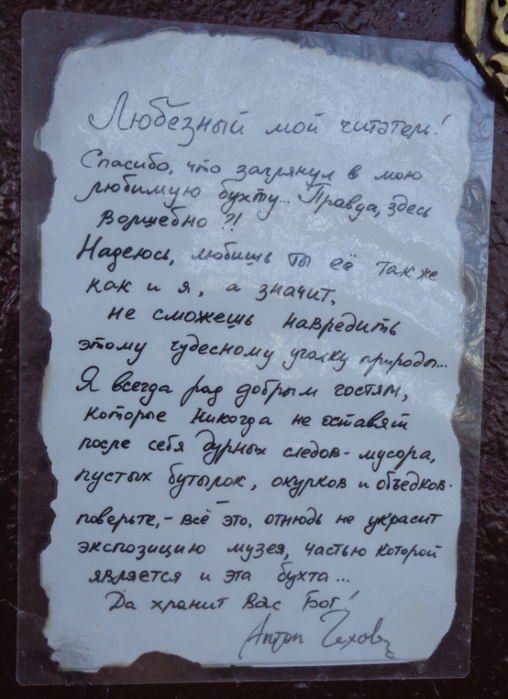 Любезный мой читатель!
Спасибо, что заглянул в мою
любимую бухту... Правда, здесь
волшебно?!
Надеюсь, любишь ты её так же
как и я, а значит,
не сможешь навредить
этому чудесному уголку природы...
Я всегда рад добрым гостям,
которые никогда не оставят
после себя дурных следов - мусора,
пустых бутылок, окурков и объедков.
поверьте, - всё это, отнюдь не украсит
экспозицию музея, частью которой
является и эта бухта...
Да хранит Вас Бог!
Антон Чехов